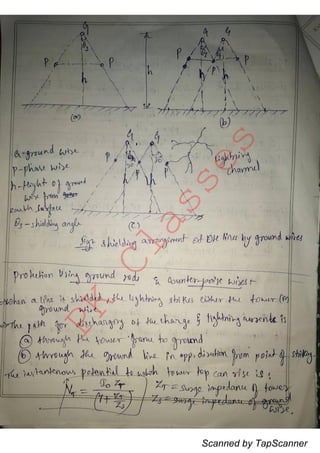 G
G G
P P
P P
h h
h h
(a)
(b)
G G
P P
P
h h
(c)
G-ground wire
P-phase wire
h-height of ground
wire from
earth surface
θs-shielding angle
Lightning
channel
Fig: shielding arrangement of OH lines by ground wires
Protection Using ground rods & counter-poise wires:-
When a line is shielded, the lightning strikes either the tower (or)
ground wire.
The path for discharging of the charge & lightning currents is
(a) through the tower frame to ground
(b) through the ground line in opp. direction from point of striking.
The instantenous potential to which tower top can rise is:
VT = I0 ZT / (1 + ZT/ZS)
ZT = surge impedance of tower
ZS = surge impedance of ground
wire.
EK Classes
Scanned by TapScanner